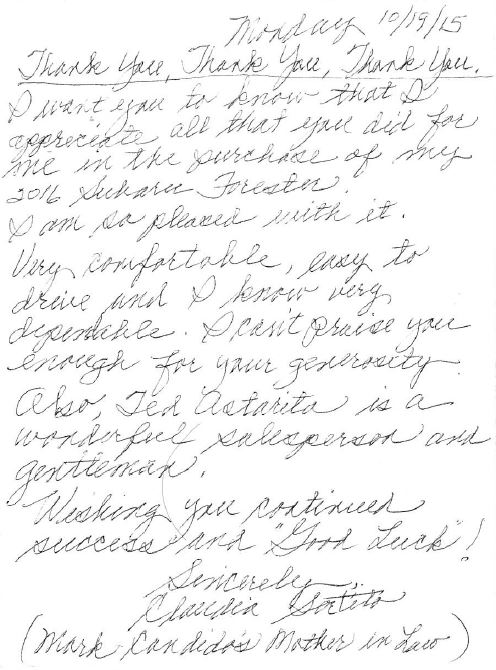 Monday 10/19/15
Thank You, Thank You, Thank You.
I want you to know that I
appreciate all that you did for
me in the purchase of my
2016 Subaru Forester.
I am so pleased with it.
Very comfortable, easy to
drive and I know very
dependable. I can't praise you
enough for your generosity.
Also, Ted Astarita is a
wonderful salesperson and
gentleman.
Wishing you continued
success and "Good Luck"!
Sincerely,
Claudia
(Mark Candido's Mother in Law)